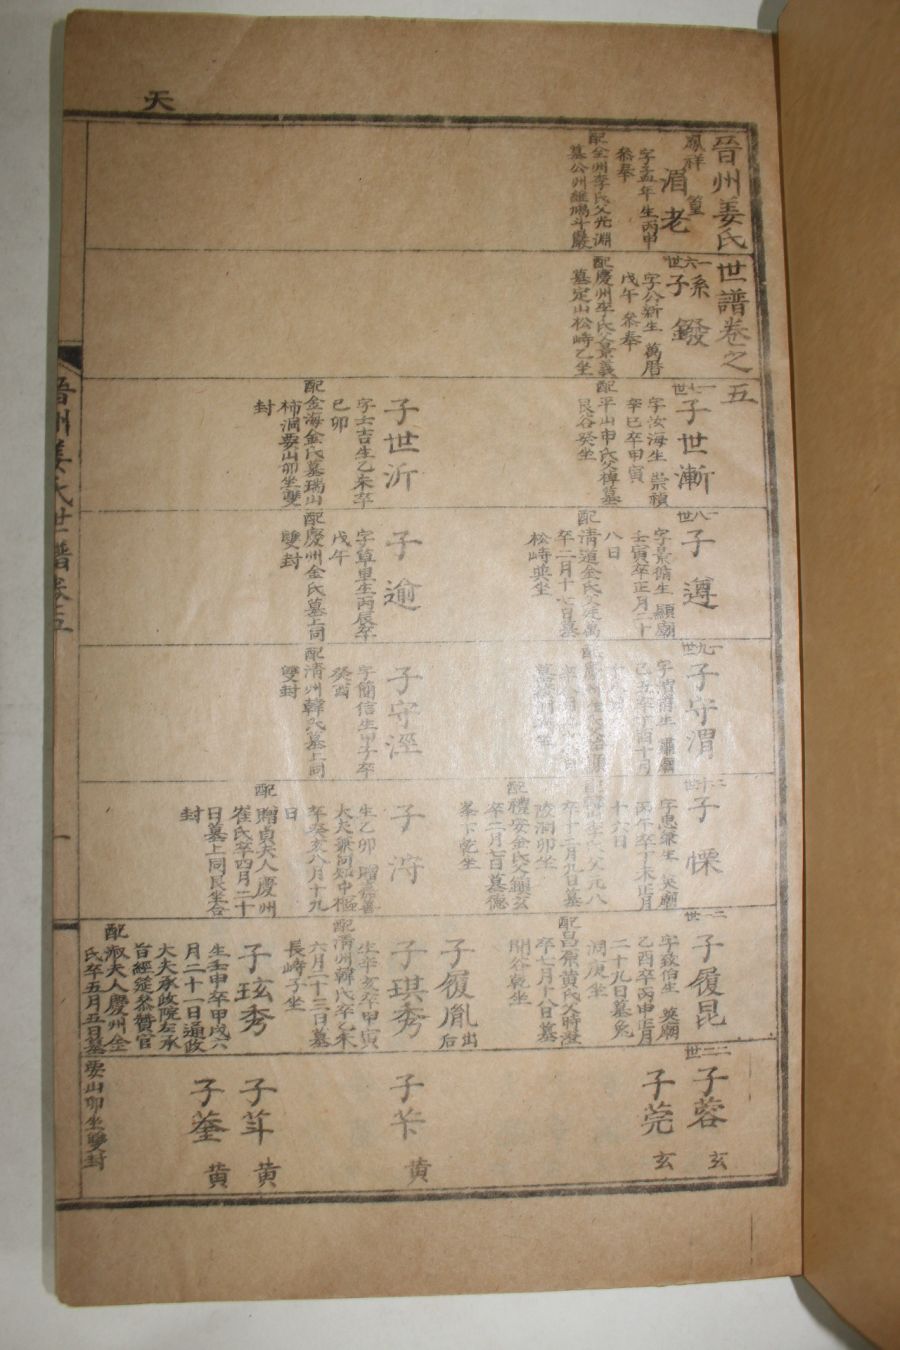 天
晉州姜氏世譜卷之五
鳳祥
篁
湄老
字孟年生丙申
叅奉
配全州李氏父光淵
墓公州維鳩斗巖
一六世
孫
子鏺
字公新生萬曆
戊午叅奉
配慶州李氏父景義
墓定山松峙乙坐
一七世
子世漸
字汝海生崇禎
辛巳卒甲寅
配平山申氏父樟墓
艮谷癸坐
子世沂
字士吉生乙未卒
己卯
配金海金氏墓瑞山
柿洞要山卯坐雙
封
一八世
子遵
字景脩生顯廟
壬寅卒正月二十
八日
配清道金氏父定萬
卒二月十七日墓
松峙巽坐
子逾
字草里生丙辰卒
戊午
配慶州金氏墓上同
雙封
一九世
子守渭
子守涇
字簡信生甲子卒
癸酉
配清州韓氏墓上同
雙封
二十世
子慄
字惠衆生英廟
丙午卒丁未正月
十六日
配韓山李氏父元八
卒十二月九日墓
陵洞卯坐
配禮安金氏父鎭玄
卒二月七日墓德
峯下乾坐
子渟
生乙卯贈嘉善
大夫兼同知中樞
卒癸亥八月十九
日
配贈貞夫人慶州
崔氏卒四月二十
日墓上同艮坐合
封
二一世
子履昆
字致伯生英廟
乙酉卒丙申正月
二十九日墓兔
洞庚坐
配昌原黃氏父時澄
卒七月十八日墓
開谷乾坐
子履胤
出后
子琪秀
生辛亥卒甲寅
配清州韓氏卒乙未
六月二十三日墓
長峙子坐
子玹秀
生壬申卒甲戌六
月二十一日通政
大夫承政院左承
旨經筵叅贊官
配淑夫人慶州金
氏卒五月五日墓
要山卯坐雙封
二二世
子蓉
玄
子莞
玄
子芐
黃
子茸
黃
子荃
黃
晉州姜氏世譜卷之五
一